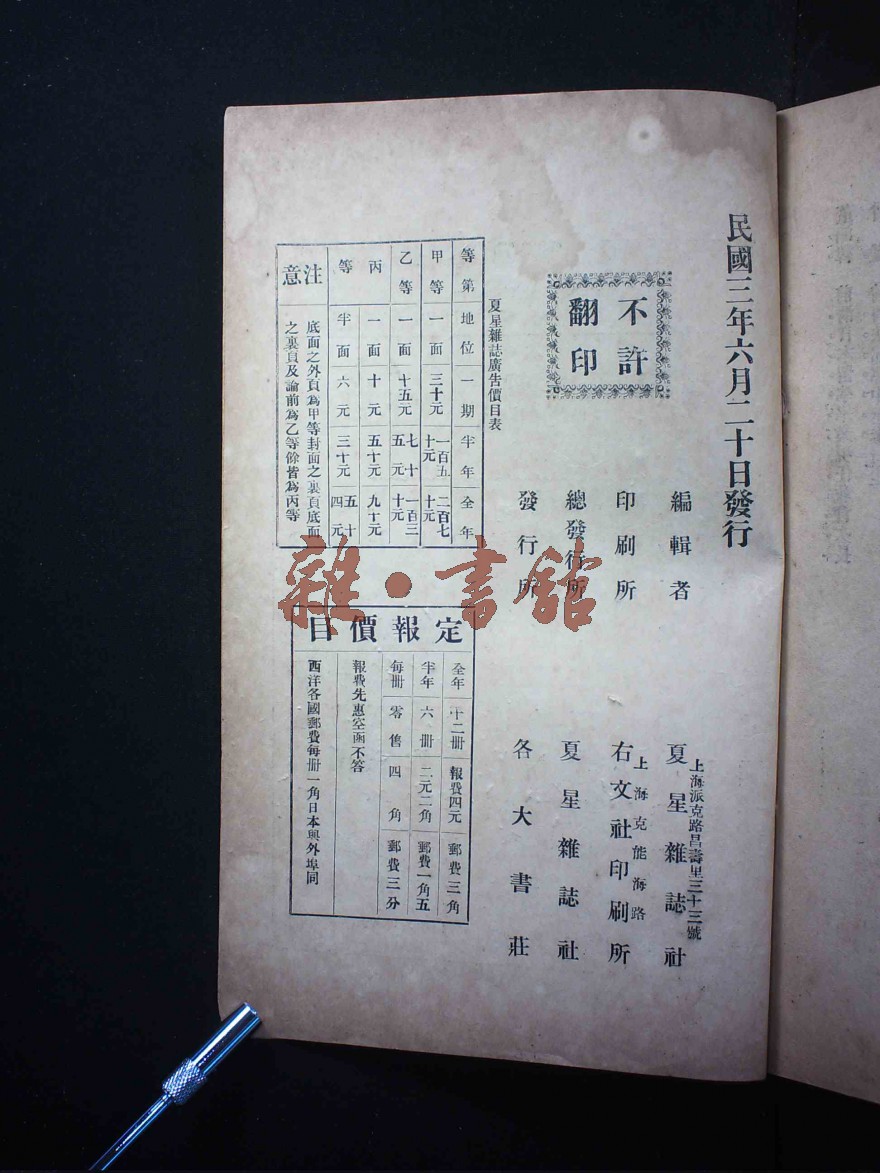 民國三年六月二十日發行
不許
翻印
編輯者
上海派克路昌壽里三十三號
夏星雜誌社
印刷所
上海克能海路
右文社印刷所
總發行所
夏星雜誌社
發行所
各大書莊
夏星雜誌廣告價目表
等第 地位 一期 半年 全年
甲等 一面 三十元 一百五十元 二百七十元
乙等 一面 十五元 七十五元 一百三十元
丙等 一面 十元 五十元 九十元
半面 六元 三十元 五十四元
注意
底面之外頁為甲等封面之裏頁底面
之裏頁及論前為乙等餘皆為丙等
定報價目
全年 十二冊 報費四元 郵費三角
半年 六冊 二元二角 郵費一角五
每冊 零售 四角 郵費三分
報費先惠空函不答
西洋各國郵費每冊一角日本與外埠同
雜·書館